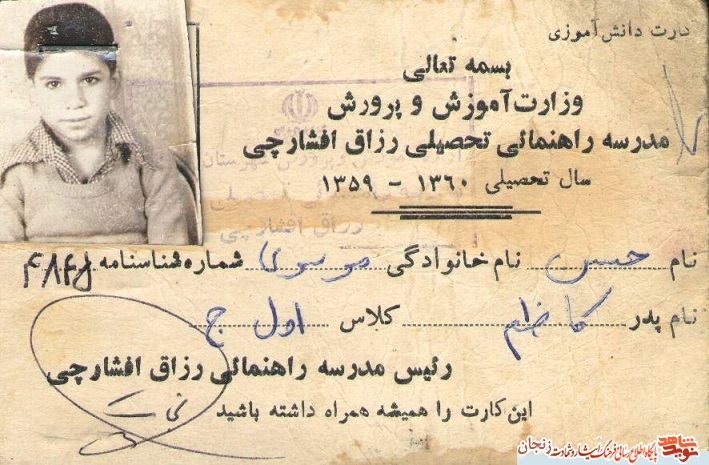 کارت دانش‌آموزی
بسمه تعالی
وزارت آموزش و پرورش
مدرسه راهنمائی تحصیلی رزاق افشارچی
سال تحصیلی ۱۳۶۰ - ۱۳۵۹
نام حسن نام خانوادگی موسوی شماره شناسنامه
نام پدر کاظم کلاس اول ج
رئیس مدرسه راهنمائی رزاق افشارچی
این کارت را همیشه همراه داشته باشید
نوید شاهد
پایگاه اطلاع رسانی فرهنگ ایثار و شهادت زنجان